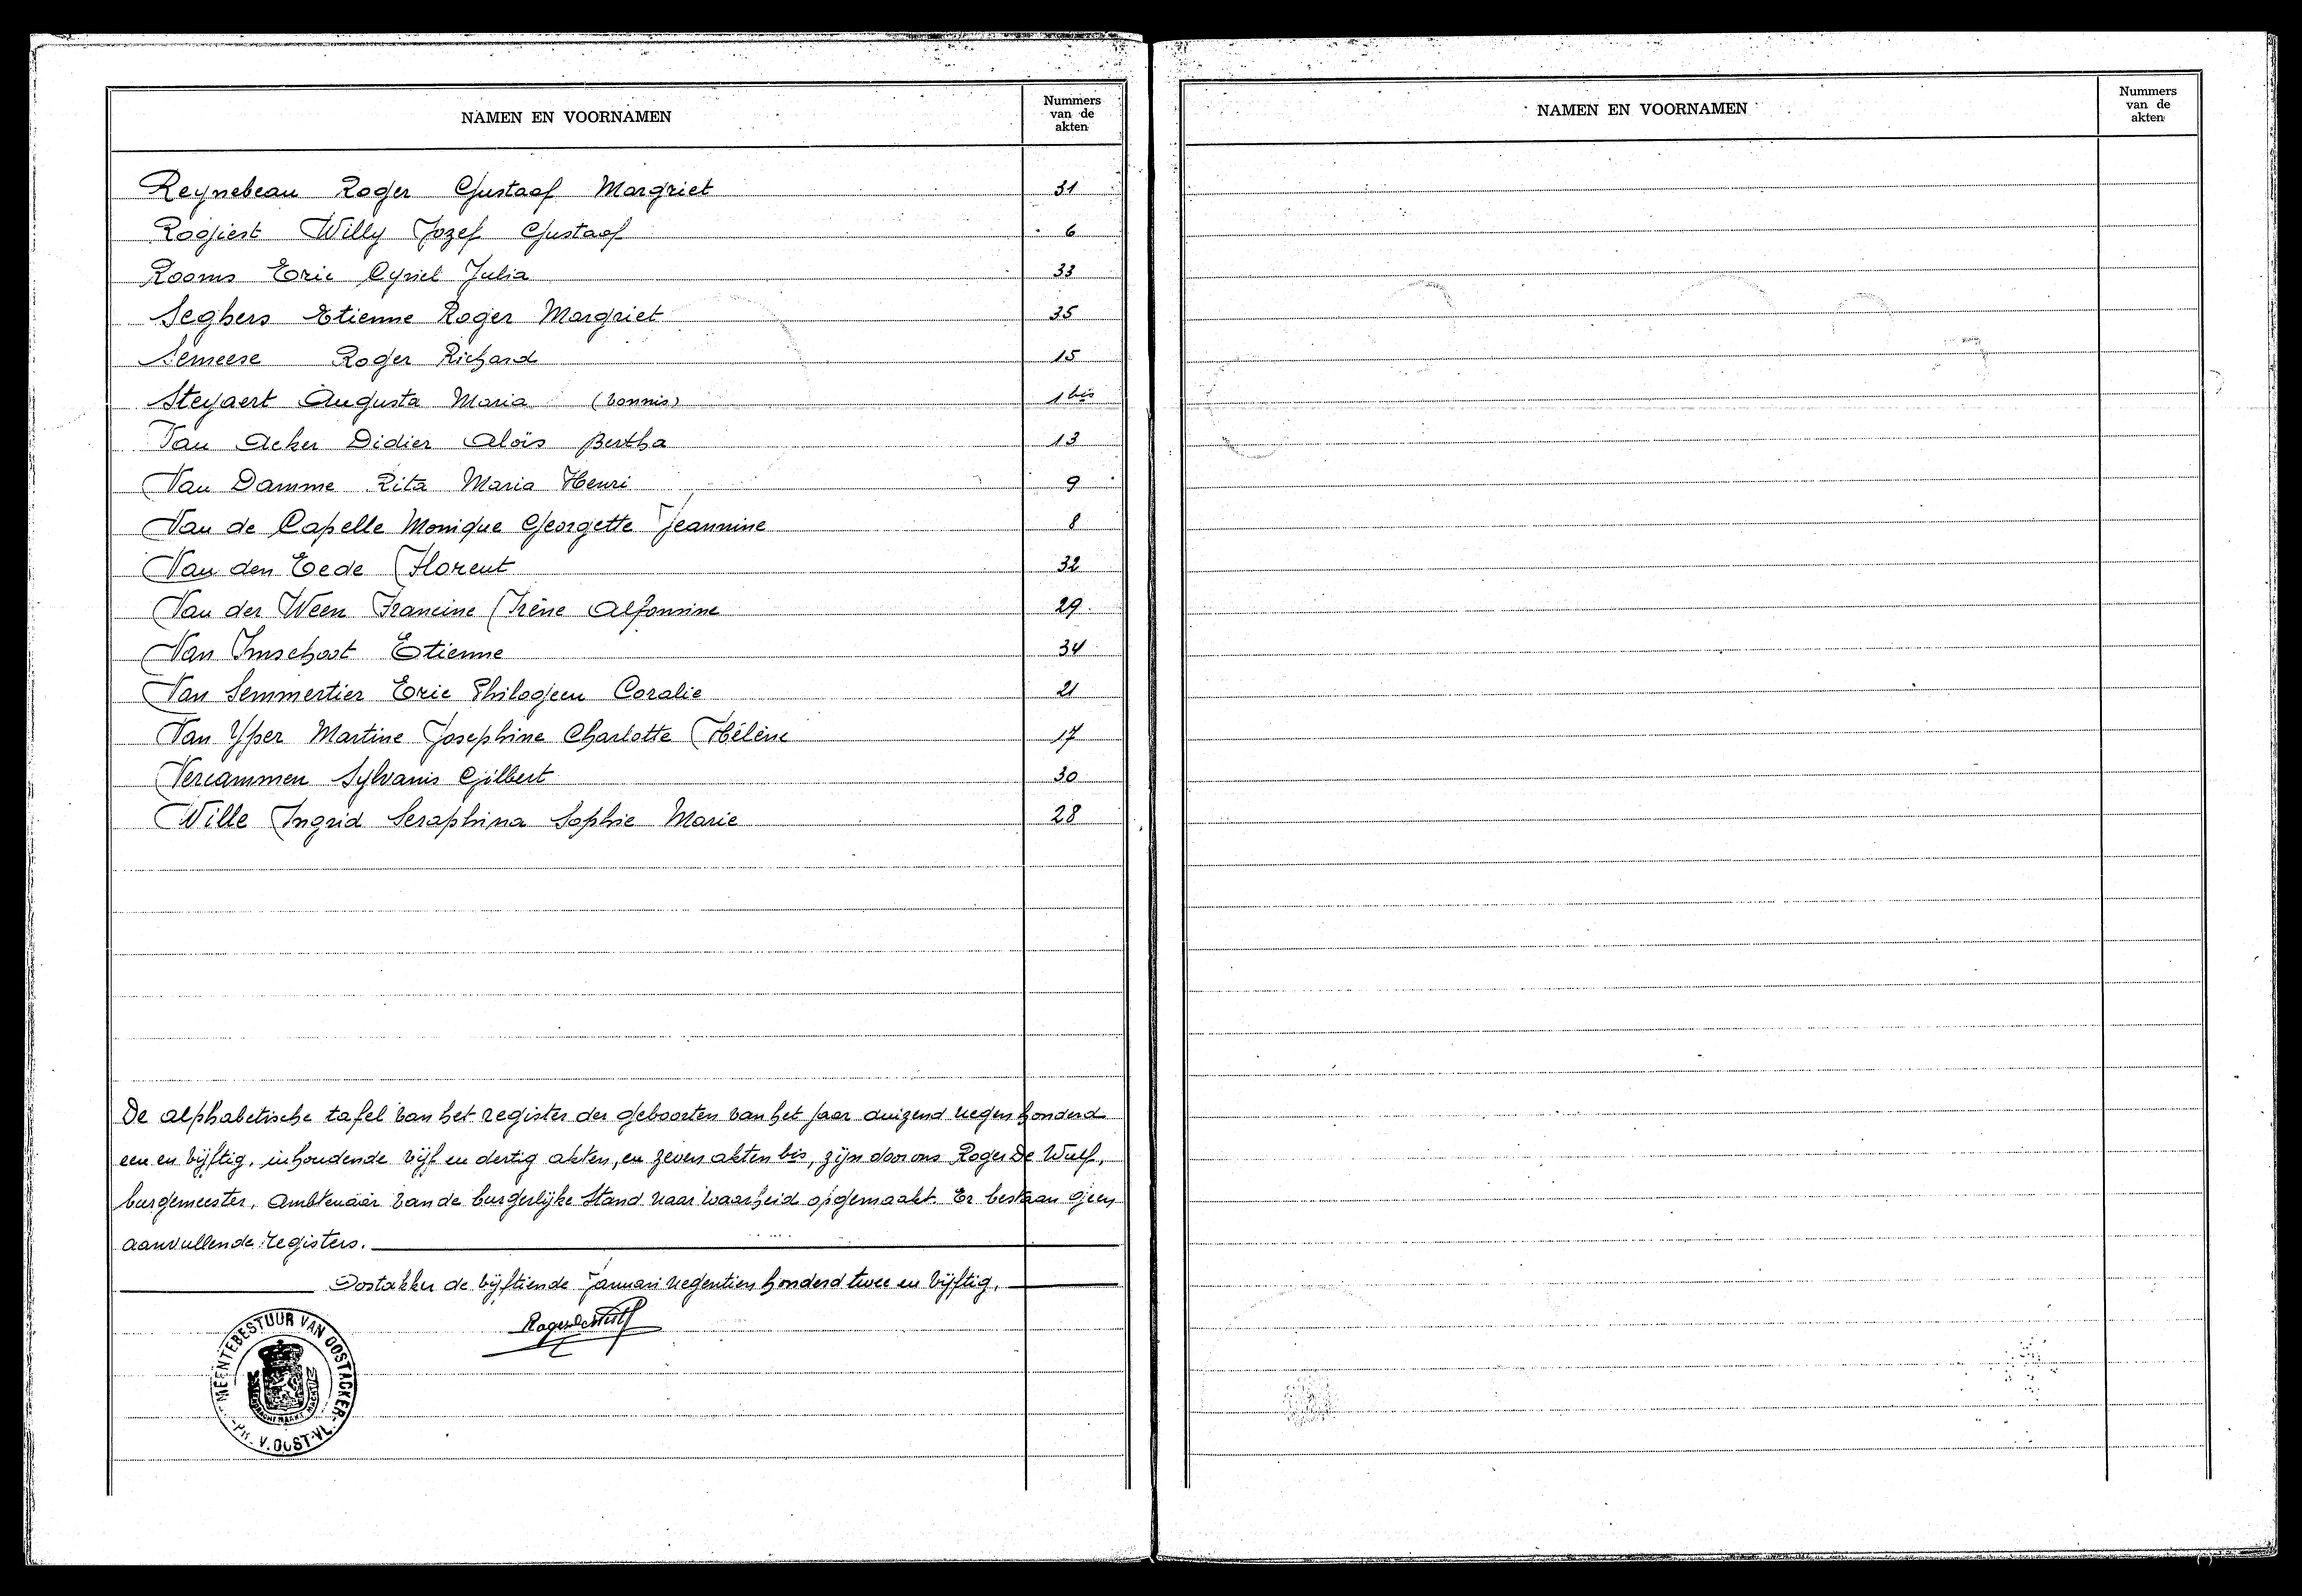 NAMEN EN VOORNAMEN Nummers van de akten
Reynebeau Roger Gustaaf Margriet 31
Rogiest Willy Jozef Gustaaf 6
Rooms Eric Cyriel Julia 33
Seghers Etienne Roger Margriet 35
Semeese Roger Richard 15
Steyaert Augusta Maria (vonnis) 1 bis
Van Acker Didier Aloïs Bertha 13
Van Damme Rita Maria Henri 9
Van de Capelle Monique Georgette Jeannine 8
Van den Eede Florent 32
Van der Weën Francine Irène Alfonsine 29
Van Imschoot Etienne 34
Van Semmertier Eric Philogeen Coralie 21
Van Yper Martine Josephine Charlotte Hélène 17
Vercammen Sylvanis Gilbert 30
Wille Ingrid Seraphina Sophie Marie 28
De alphabetische tafel van het register der geboorten van het jaar duizend negen honderd
een en vijftig, inhoudende vijf en dertig akten, en zeven akten bis, zijn door ons Roger De Wulf,
burgemeester, Ambtenaar van de burgerlijke Stand naar waarheid opgemaakt. Er bestaan geen
aanvullende registers.
Oostakker de vijftiende Januari negentien honderd twee en vijftig.
Roger De Wulf
MEENTEBESTUUR VAN OOSTACKER
PR. V. OOST-VL.
NAMEN EN VOORNAMEN Nummers van de akten